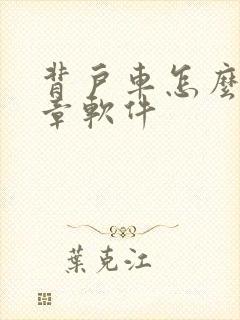 背戶車怎麼
章軟件
葉克江